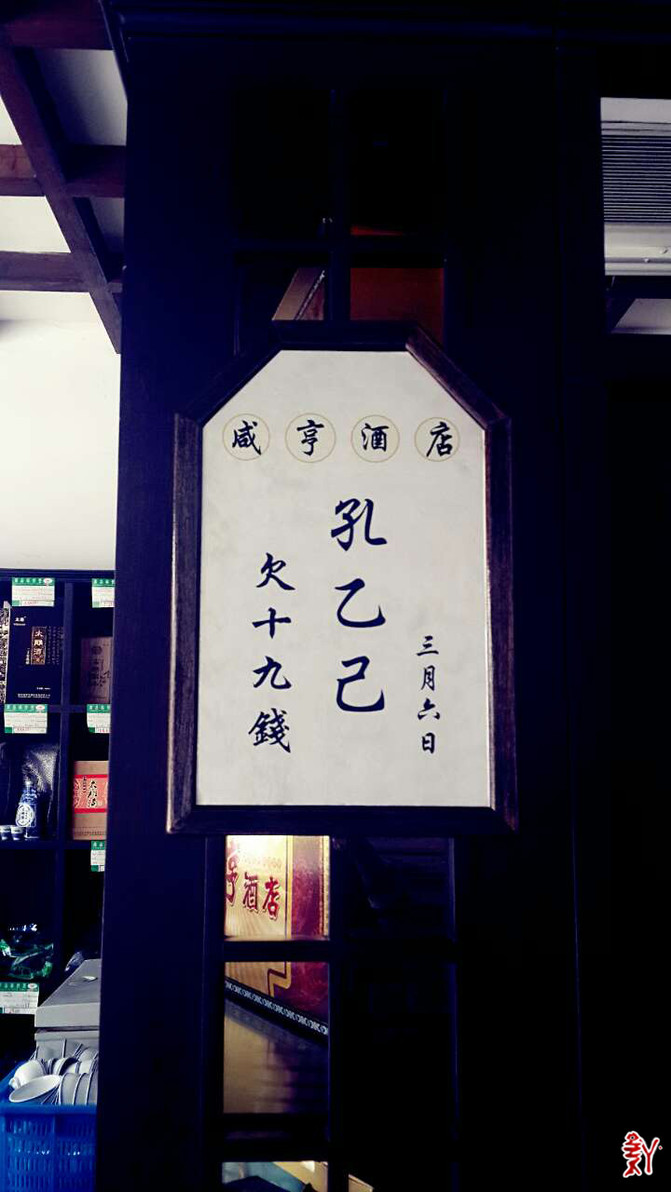 咸亨酒店
三月六日
孔乙己
欠十九錢
酒店